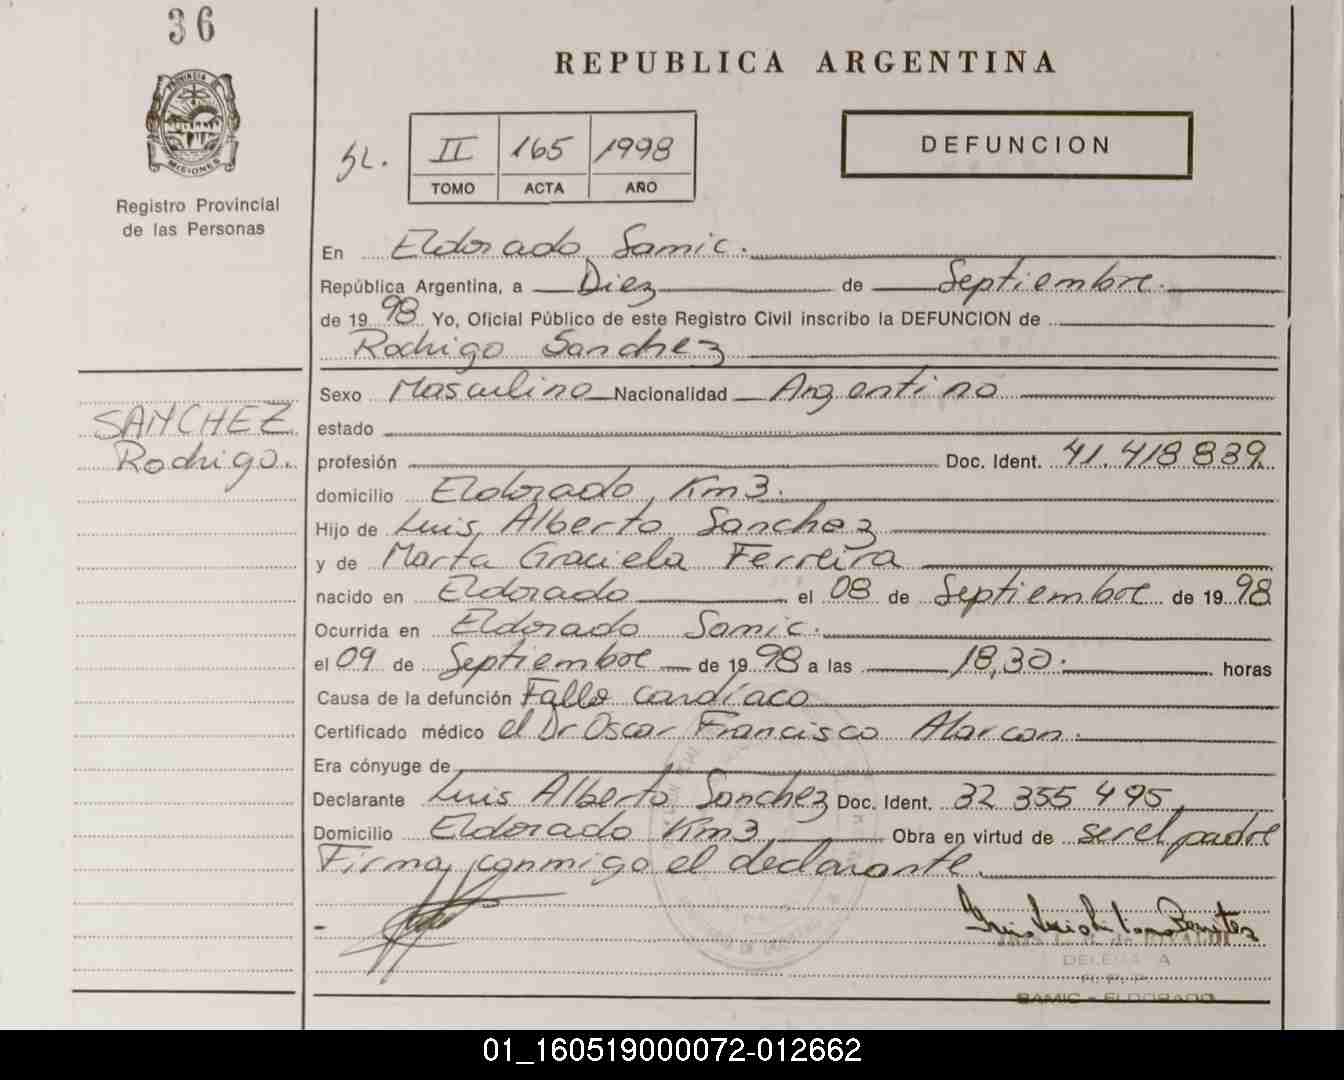 36
PROVINCIA D
MISIONES
Registro Provincial
de las Personas
SANCHEZ
Rodrigo.
REPUBLICA ARGENTINA
SL. II 165 1998
TOMO ACTA AÑO
DEFUNCION
En Eldorado Samic.
República Argentina, a Diez de Septiembre.
de 19 98 Yo, Oficial Público de este Registro Civil inscribo la DEFUNCION de
Rodrigo Sanchez
Sexo Masculino Nacionalidad Argentino
estado
profesión Doc. Ident. 41.418 839.
domicilio Eldorado, Km3.
Hijo de Luis Alberto Sanchez
y de Marta Graciela Ferreira
nacido en Eldorado el 08 de Septiembre de 19 98
Ocurrida en Eldorado Samic.
el 09 de Septiembre de 19 98 a las 18,30. horas
Causa de la defunción Fallo cardíaco
Certificado médico el Dr Oscar Francisco Alarcon.
Era cónyuge de
Declarante Luis Alberto Sanchez Doc. Ident. 32 355 495,
Domicilio Eldorado Km3, Obra en virtud de ser el padre
Firma conmigo el declarante.
SAMIC - ELDORADO
01_160519000072-012662